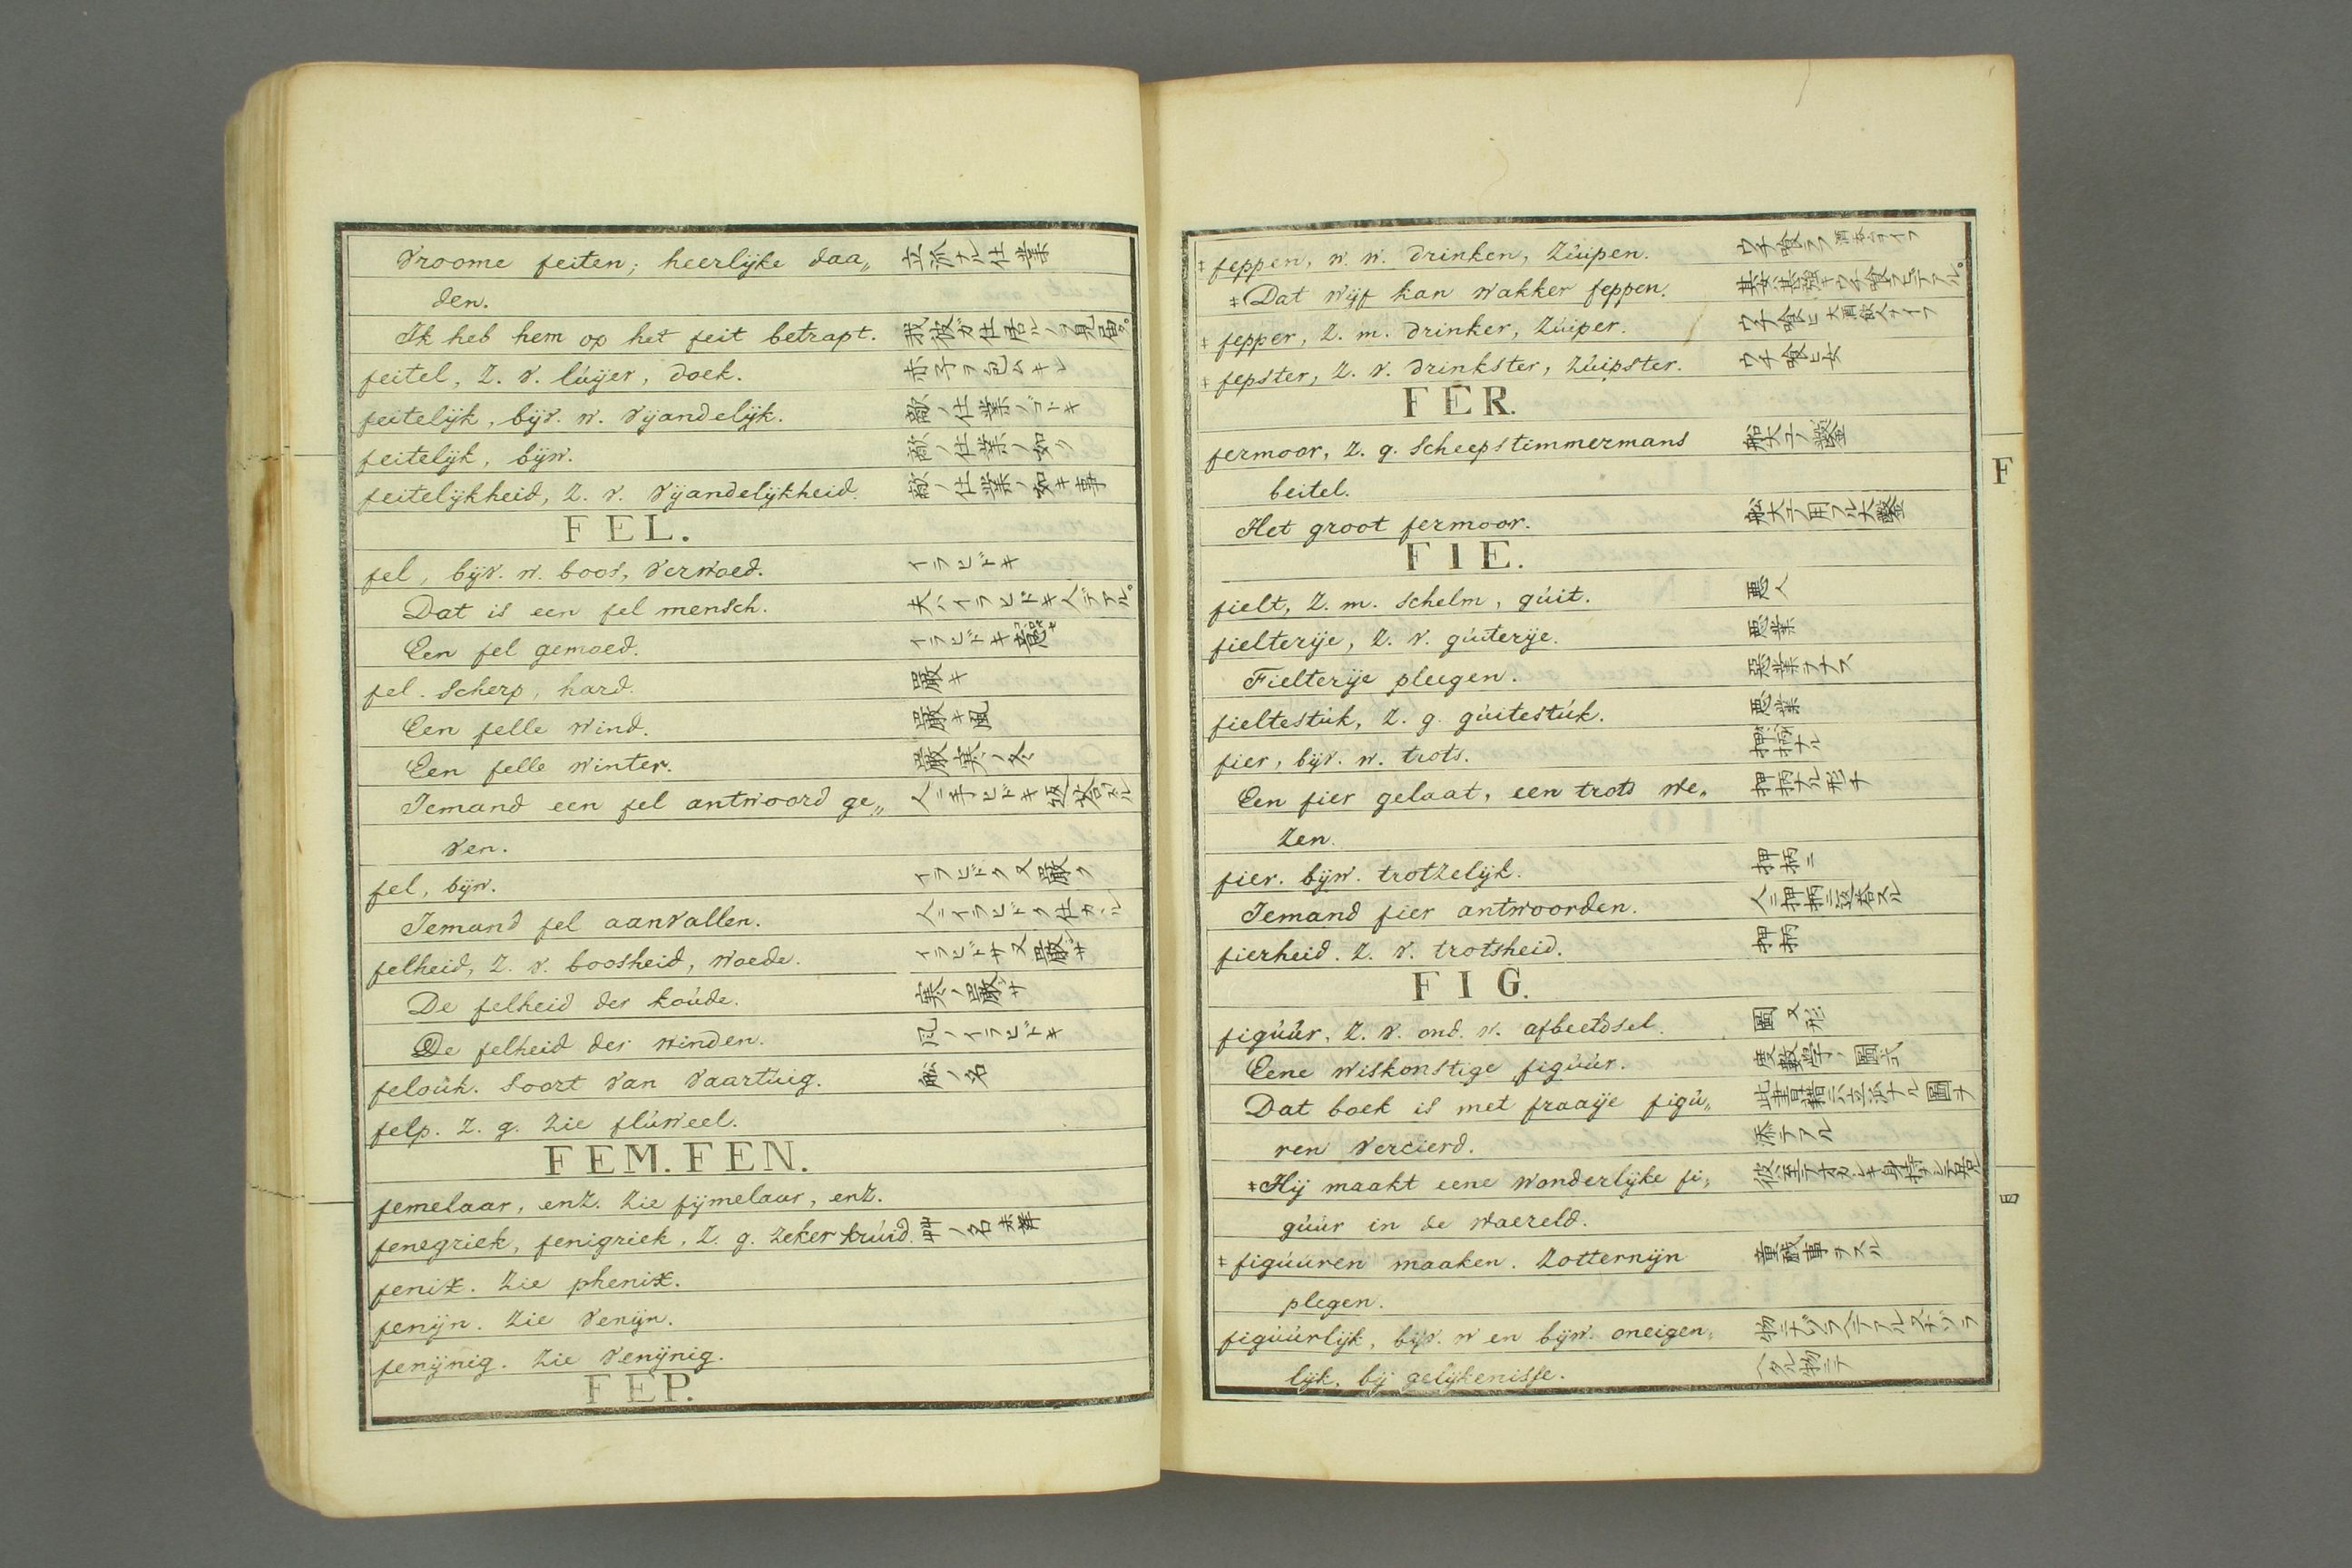 Vroome feiten; heerlijke daa„ 立派ナル仕業
den.
Ik heb hem op het feit betrapt.
feitel, Z. V. lúijer, doek. 赤子ヲ包ムキレ
feitelijk, bijv. w. Vijandelijk. 敵ノ仕業ノゴトキ
feitelijk, bijw. 敵ノ仕業ノ如ク
feitelijkheid, Z. V. Vijandelijkheid. 敵ノ仕業ノ如キ事
FEL.
fel, bijv. w. boos, Verwoed. イラヒドキ
Dat is een fel mensch. 夫ハイラヒドキ人デアル。
Een fel gemoed. イラヒドキ意
fel. Scherp, hard. 嚴キ
Een felle wind. 嚴キ風
Een felle winter. 嚴寒ノ冬
Iemand een fel antwoord ge„ 人ニ手ヒドキ返答スル
ven.
fel, bijw. イラヒドク又嚴ク
Iemand fel aanvallen. 人ニイラヒドク仕カル
felheid, Z. V. boosheid, woede. イラヒドサ又嚴サ
De felheid der koúde. 寒ノ嚴サ
De felheid der winden. 風ノイラヒドキ
feloúk. Soort van Vaartúig. 舩ノ名
felp. Z. g. Zie flúweel.
FEM. FEN.
femelaar, enz. Zie fijmelaar, enz.
fenegriek, fenigriek, Z. g. Zeker krúid. 艸ノ名
fenix. Zie phenix.
fenijn. Zie Venijn.
fenijnig. Zie Venijnig.
FEP.
‡ feppen, w. w. drinken, Zúipen. ウチ喰ラフ
‡ Dat wijf kan wakker feppen.
‡ fepper, Z. m. drinker, Zúiper. ウチ喰ヒ 大酒飲ヲイフ
‡ fepster, Z. V. drinkster, Zúipster. ウチ喰ヒ女
FER.
fermoor, Z. g. Scheepstimmermans 船大工ノ鑿
beitel.
Het groot fermoor. 船大工ノ用フル大鑿
FIE.
fielt, Z. m. Schelm, gúit. 悪人
fielterije, Z. V. gúiterije. 悪業
Fielterije pleegen. 惡業ヲナス
fieltestúk, Z. g. gúitestúk. 悪業
fier, bijv. w. trots. 押柄ナル
Een fier gelaat, een trots we„ 押柄ナル形チ
Zen.
fier. bijw. trotzelijk. 押柄ニ
Iemand fier antwoorden. 人ニ押柄ニ返答スル
fierheid. Z. V. trotsheid. 押柄
FIG.
figúúr, Z. V. ond. w. afbeeldsel. 圖 又 形
Eene wiskonstige figúúr. 度數學ノ圖式
Dat boek is met fraaije figú„ 此書籍ニハ立派ナル圖ヲ
ren vercierd. 添テアル
‡ Hij maakt eene wonderlijke fi„
gúúr in de waereld.
‡ figúúren maaken. Zotternijn 童戯事ヲスル
plegen.
figúúrlijk, bijv. w en bijw. oneigen„
lijk. bij gelijkenisse.
F